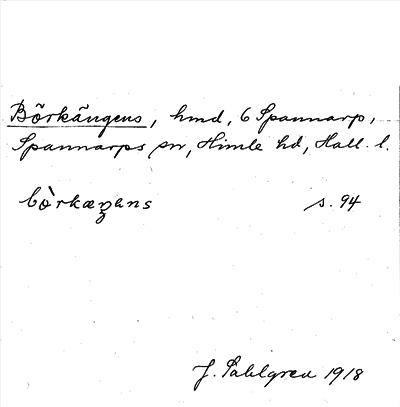 Börkängens, hmd, 6 Spannarp,
Spannarps sn, Himle hd, Hall. l.
bòrkæŋens s. 94
J. Sahlgren 1918